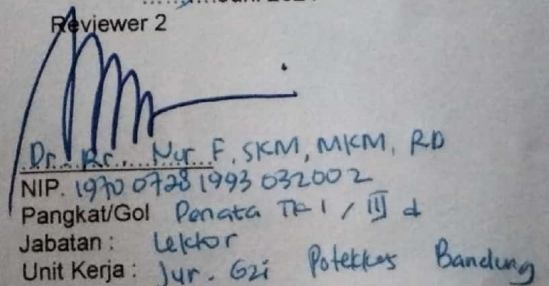 Reviewer 2
Dr. Rr. Nur F, SKM, MKM, RD
NIP. 19700728 1993 032002
Pangkat/Gol Penata TK I / III d
Jabatan : Lektor
Unit Kerja : Jur. Gzi Potekkes Bandung